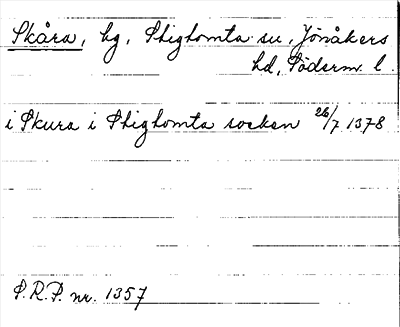 Skåra, hg, Stigtomta sn, Jönåkers
hd, Söderm. l.
i Skura i Stigtomta socken 26/7 1378
S.R.P. nr. 1357